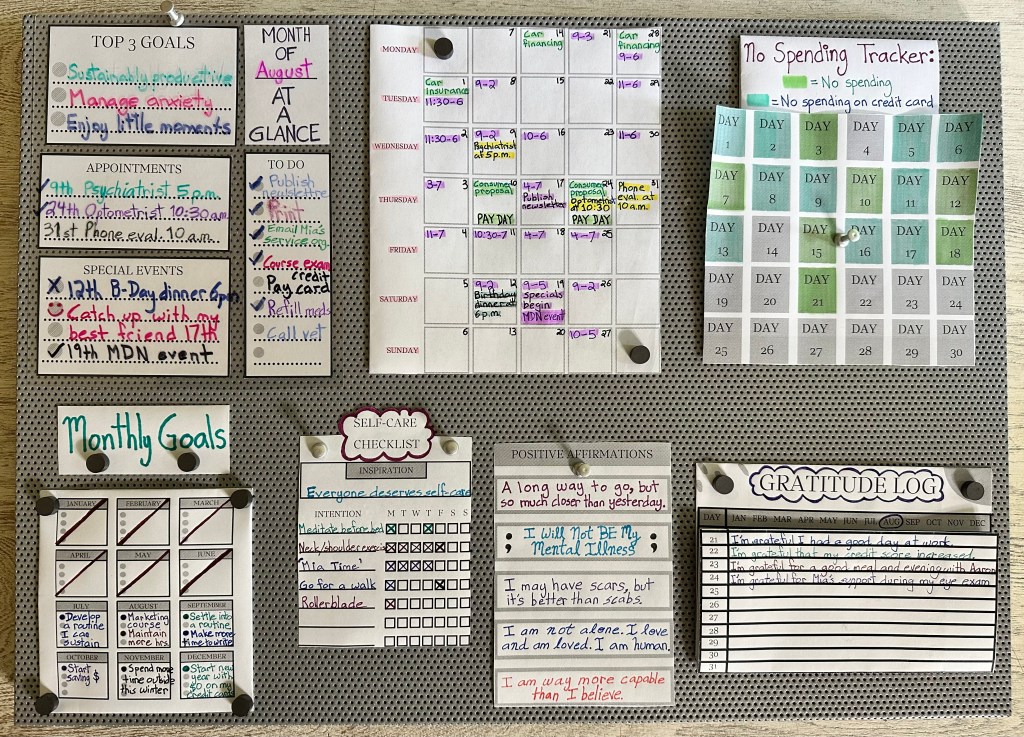 TOP 3 GOALS
Sustainably productive
Manage anxiety
Enjoy little moments
MONTH
OF
August
AT
A
GLANCE
APPOINTMENTS
9th Psychiatrist 5 p.m.
24th Optometrist 10:30 a.m.
31st Phone eval. 10 a.m.
SPECIAL EVENTS
12th B-Day dinner 6pm
Catch up with my
best friend 17th
19th MDN event
TO DO
Publish
newsletter
Print
Email Mia's
service org.
Course exam
Pay credit
card
Refill meds
Call vet
MONDAY
7
14
Car
financing
21
9-3
28
Car
financing
9-6
TUESDAY
1
Car
insurance
11:30-6
8
9-2
15
22
29
WEDNESDAY
2
11:30-6
9
9-2
Psychiatrist
at 5 p.m.
16
10-6
23
30
11-6
THURSDAY
3
3-7
10
Consumer
proposal
PAY DAY
17
4-7
Publish
newsletter
24
Consumer
proposal
Optometrist
at 10:30
PAY DAY
31
Phone
eval. at
10 a.m.
FRIDAY
4
11-7
11
10:30-7
18
4-7
25
4-7
SATURDAY
5
12
9-2
Birthday
dinner at
6 p.m.
19
9-5
specials
begin
MDN event
26
9-2
SUNDAY
6
13
20
27
10-5
No Spending Tracker:
= No spending
= No spending on credit card
DAY 1 DAY 2 DAY 3 DAY 4 DAY 5 DAY 6
DAY 7 DAY 8 DAY 9 DAY 10 DAY 11 DAY 12
DAY 13 DAY 14 DAY 15 DAY 16 DAY 17 DAY 18
DAY 19 DAY 20 DAY 21 DAY 22 DAY 23 DAY 24
DAY 25 DAY 26 DAY 27 DAY 28 DAY 29 DAY 30
Monthly Goals
JANUARY
FEBRUARY
MARCH
APRIL
MAY
JUNE
JULY
Develop
a routine
I can
sustain
AUGUST
Marketing
course
Maintain
more hrs.
SEPTEMBER
Settle into
a routine
Make more
time to write
OCTOBER
Start
saving $
NOVEMBER
Spend more
time outside
this winter
DECEMBER
Start new
year with
$0 on my
credit card
SELF-CARE
CHECKLIST
INSPIRATION
Everyone deserves self-care
INTENTION M T W T F S S
Meditate before bed
Neck/shoulder exercise
'Mia Time'
Go for a walk
Rollerblade
POSITIVE AFFIRMATIONS
A long way to go, but
so much closer than yesterday.
; I Will Not BE My ;
Mental Illness
I may have scars, but
it's better than scabs.
I am not alone. I love
and am loved. I am human.
I am way more capable
than I believe.
GRATITUDE LOG
DAY JAN FEB MAR APR MAY JUN JUL AUG SEP OCT NOV DEC
21 I'm grateful I had a good day at work.
22 I'm grateful that my credit score increased.
23 I'm grateful for a good meal and evening with Aaron
24 I'm grateful for Mia's support during my eye exam
25
26
27
28
29
30
31